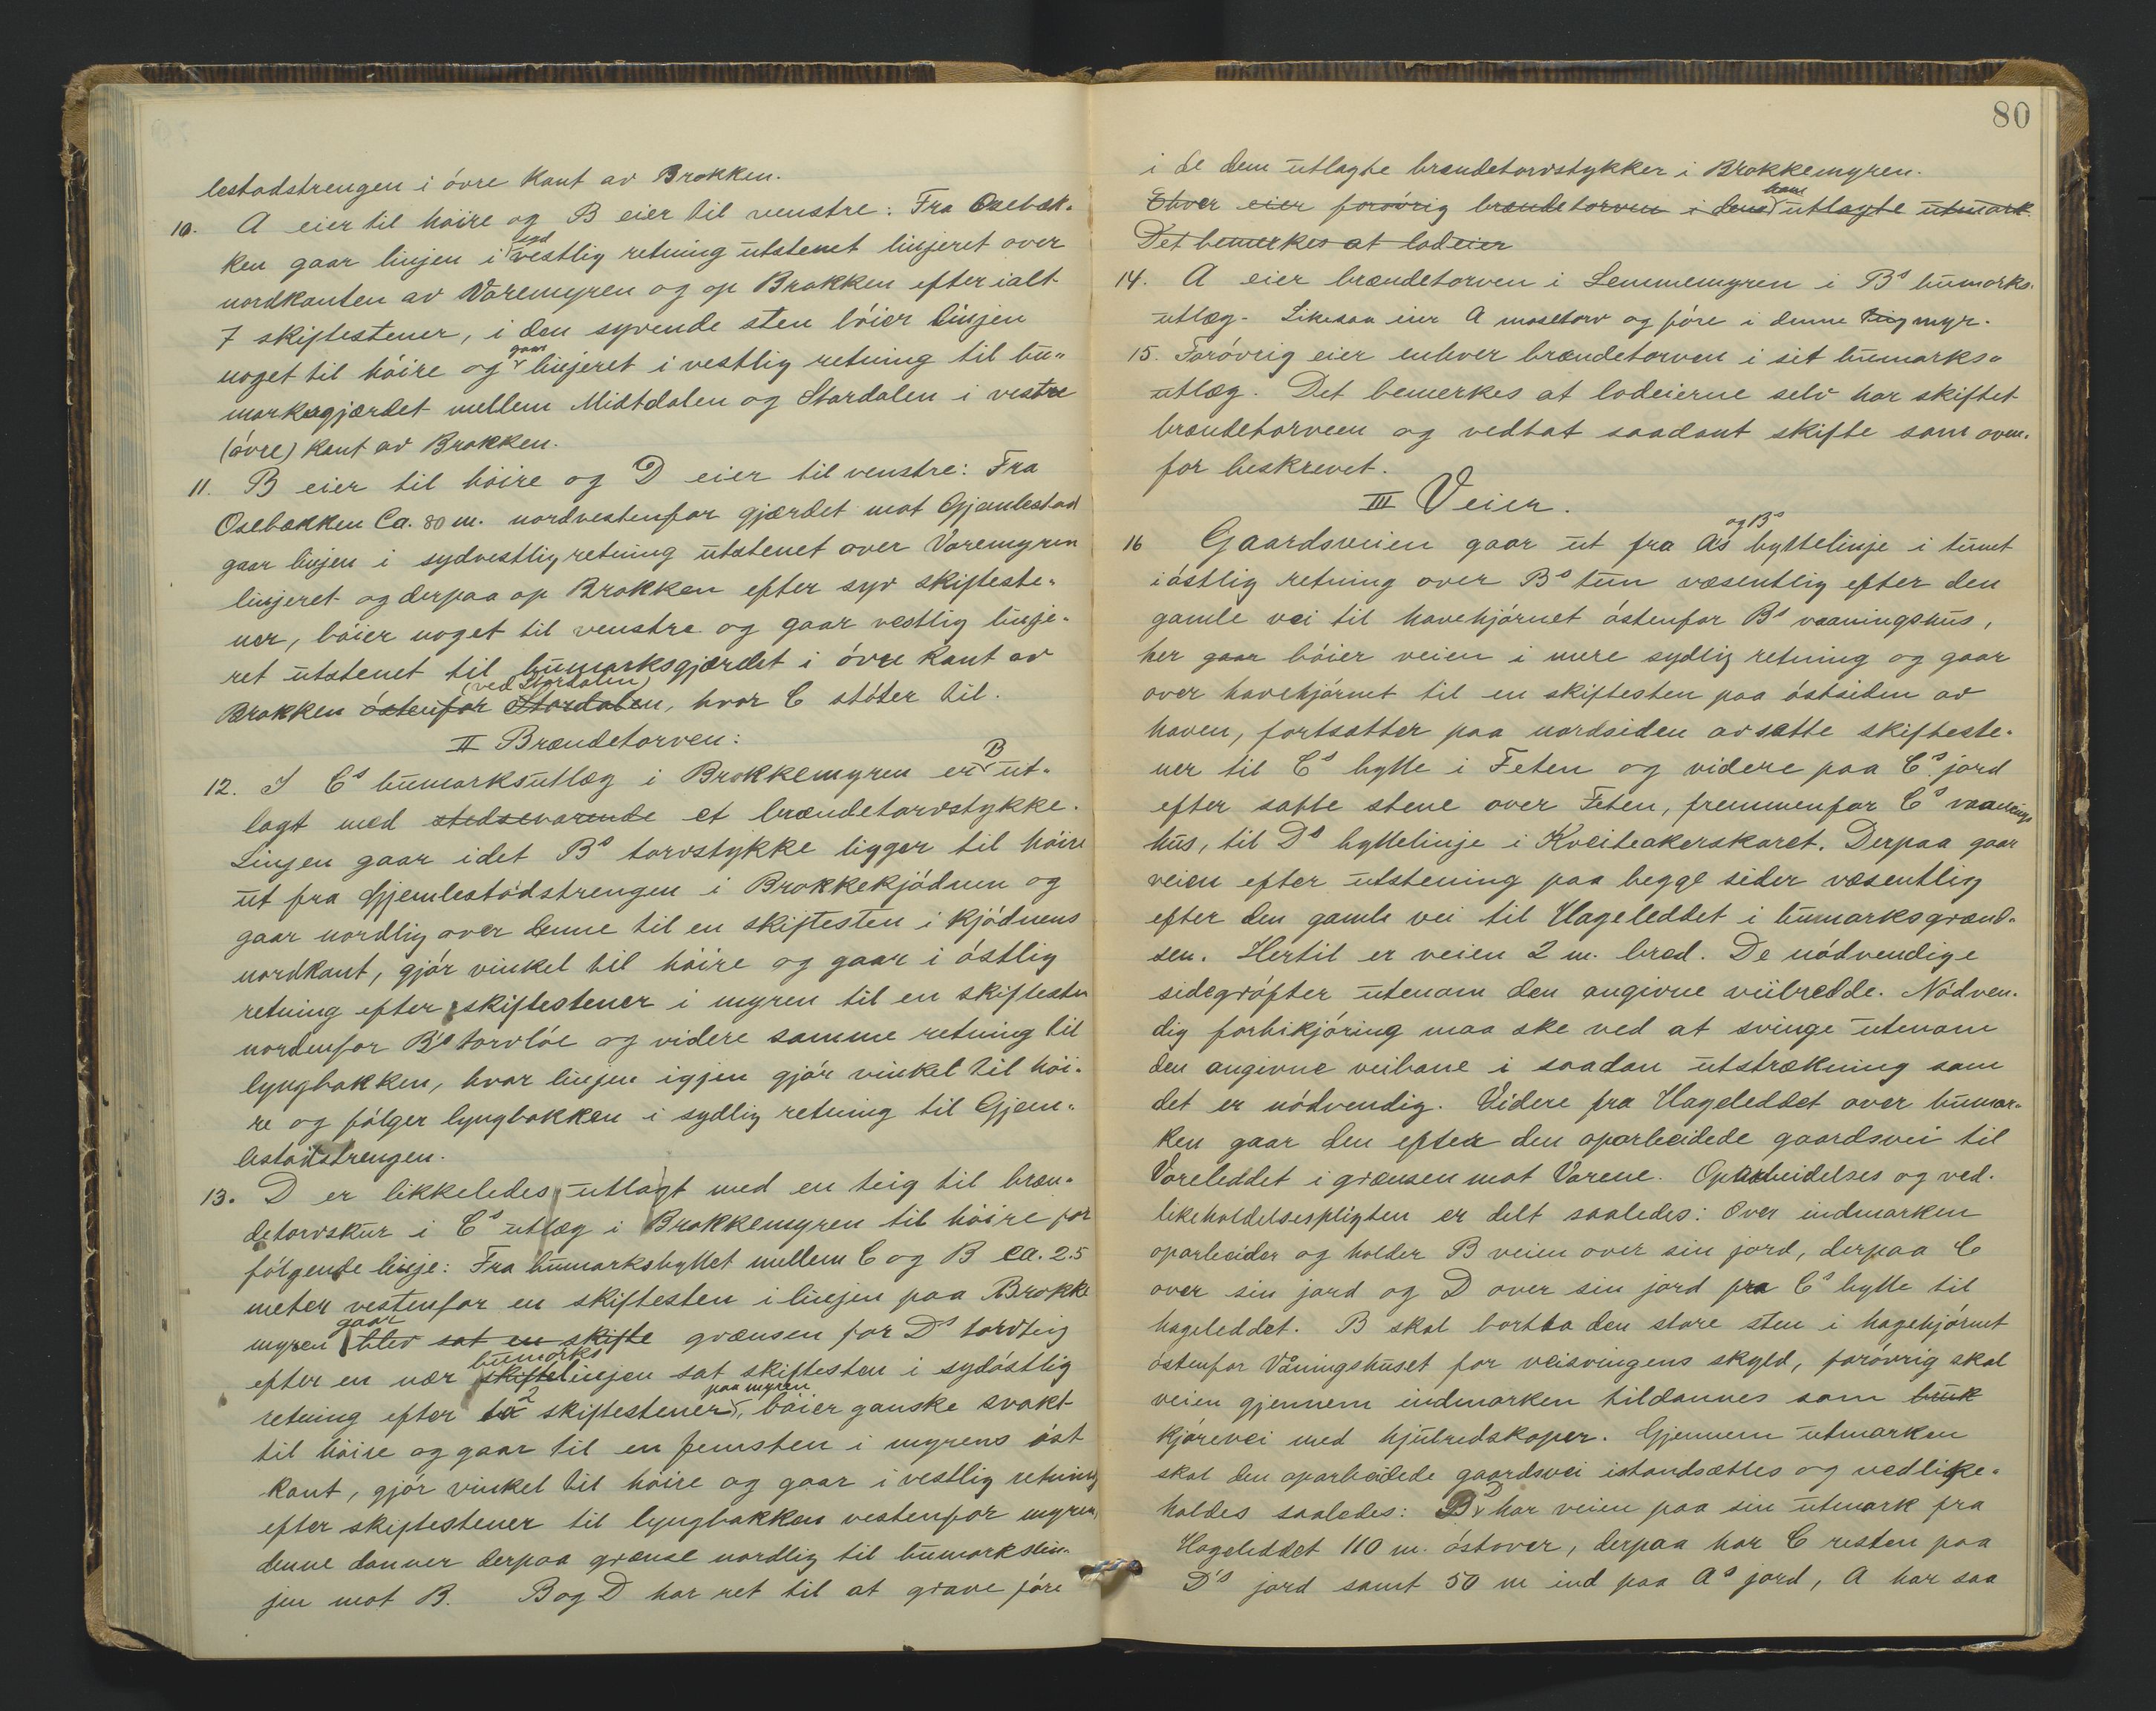 lestadstrengen i óvre kant av Brokken.
10. A eier til höire og B eier til venstre: Fra Osebæk-
ken gaar linjen i syd vestlig retning utstenet linjeret over
nordkanten av Varemyren og op Brokken efter ialt
7 skiftestener, i den syvende sten bóier linjen
noget til hóire og gaar linjeret i vestlig retning til bu-
marksgjærdet mellem Midtdalen og Stordalen i vestre
(óvre) kant av Brokken.
11. B eier til hóire og D eier til venstre: Fra
Osebækken Ca. 80 m. nordvestenfor gjærdet mot Gjemlestad
gaar linjen i sydvestlig retning utstenet over Varemyren
linjeret og derpaa op Brokken efter syv skifteste-
ner, bóier noget til venstre og gaar vestlig linje-
ret utstenet til bumarksgjærdet i óvre kant av
Brokken óstenfor Stordalen (ved Stordalen), hvor C stóter til.
II Brændetorven:
12. I Cs bumarksutlæg i Brokkemyren er B ut-
lagt med stedsevarende et brændetorvstykke.
Linjen gaar idet Bs torvstykke ligger til hóire
ut fra Gjemlestadstrengen i Brokkekjódnen og
gaar nordlig over denne til en skiftesten i kjódnens
nordkant, gjór vinkel til hóire og gaar i óstlig
retning efter skiftestener i myren til en skiftesten
nordenfor B's torvlóe og videre samme retning til
lyngbakken, hvor linjen igjen gjór vinkel til hói-
re og fólger lyngbakken i sydlig retning til Gjem-
lestadstrengen.
13. D er likkeledes utlagt med en teig til bræn-
detorvskur i Cs utlæg i Brokkemyren til hóire for
fólgende linje: Fra bumarksbyttet mellem C og B ca. 2.5
meter vestenfor en skiftesten i linjen paa Brokke
myren blev sat en skifte gaar grænsen for Ds torvteig
efter en nær skifte bumarks linjen sat skiftesten i sydóstlig
retning efter to 2 skiftestener paa myren, bóier ganske svakt
til hóire og gaar til en femsten i myrens óst
kant, gjór vinkel til hóire og gaar i vestlig retning
efter skiftestener til lyngbakken vestenfor myren,
denne danner derpaa grænse nordlig til bumarkslin-
jen mot B. B og D har ret til at grave fóre
80
i de dem utlagte brændetorvstykker i Brokkemyren.
Ehver eier foróvrig brændetorven i dens ham utlagte utmark.
Det bemerkes at lodeier
14. A eier brændetorven i Lemmemyren i Bs bumarks-
utlæg. Likesaa eier A mosetorv og fóre i denne teig myr.
15. Foróvrig eier enhver brændetorven i sit bumarks-
utlæg. Det bemerkes at lodeierne selv har skiftet
brændetorveen og vedtat saadant skifte som oven-
for beskrevet.
III Veier.
16 Gaardsveien gaar ut fra A's og Bs byttelinje i tunet
i óstlig retning over Bs tun væsentlig efter den
gamle vei til havehjórnet óstenfor Bs vaaningshus,
her gaar bóier veien i mere sydlig retning og gaar
over havehjórnet til en skiftesten paa óstsiden av
haven, fortsætter paa nordsiden av satte skifteste-
ner til Cs bytte i Feten og videre paa Cs jord
efter satte stene over Feten, fremmenfor Cs vaanings
hus, til Ds byttelinje i Kveiteakerskaret. Derpaa gaar
veien efter utstening paa begge sider væsentlig
efter den gamle vei til Hageleddet i bumarksgrænd-
sen. Hertil er veien 2 m. bred. De nódvendige
sidegrófter utenom den angivne veibredde. Nódven-
dig forbikjóring maa ske ved at svinge utenom
den angivne veibane i saadan utstrækning som
det er nódvendig. Videre fra Hageleddet over bumar-
ken gaar den efter den oparbeidede gaardsvei til
Voreleddet i grænsen mot Varene. Oparbeidelses og ved-
likeholdelsespligten er delt saaledes: Over indmarken
oparbeider og holder B veien over sin jord, derpaa C
over sin jord og D over sin jord fra Cs bytte til
hageleddet. B skal bortta den store sten i hagehjórnet
óstenfor Våningshuset for veisvingens skyld, foróvrig skal
veien gjennem indmarken tildannes som bruk
kjórevei med hjulredskaper. Gjennem utmarken
skal den oparbeidede gaardsvei istandsættes og vedlike-
holdes saaledes: D har veien paa sin utmark fra
Hageleddet 110 m. óstover, derpaa har C resten paa
D's jord samt 50 m ind paa As jord, A har saa